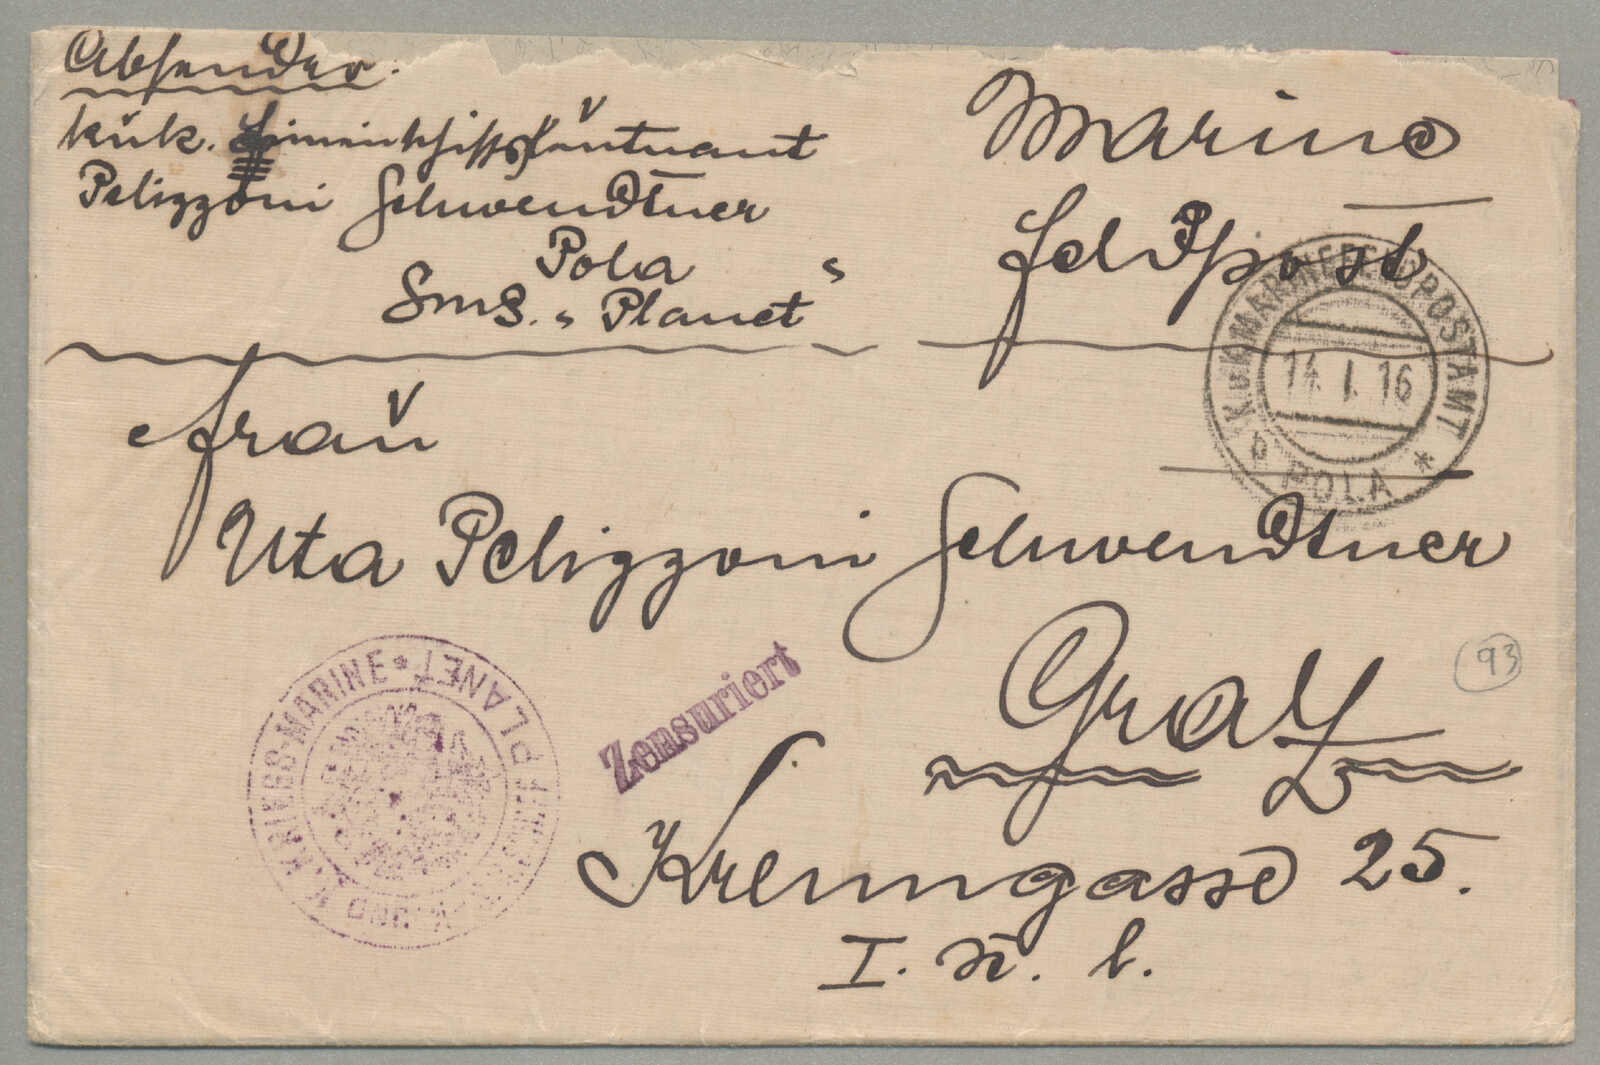 Absender.
kuk. Linienschiffsleutnant
Pelizzoni Schwendtner
Pola
SMS. "Planet"
Marine
Feldpost
K.u.K. MARINEFELDPOSTAMT
14. I. 16
b POLA *
Frau
Uta Pelizzoni Schwendtner
Graz
93
Zensuriert
K. UND K. KRIEGS-MARINE * PLANET
Kremgasse 25.
I. St. l.